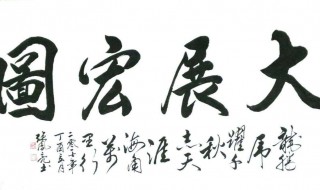 大展宏圖
龍騰
虎
躍千
秋
志天
涯
海角
萬
里行
二零一七年
丁酉五月